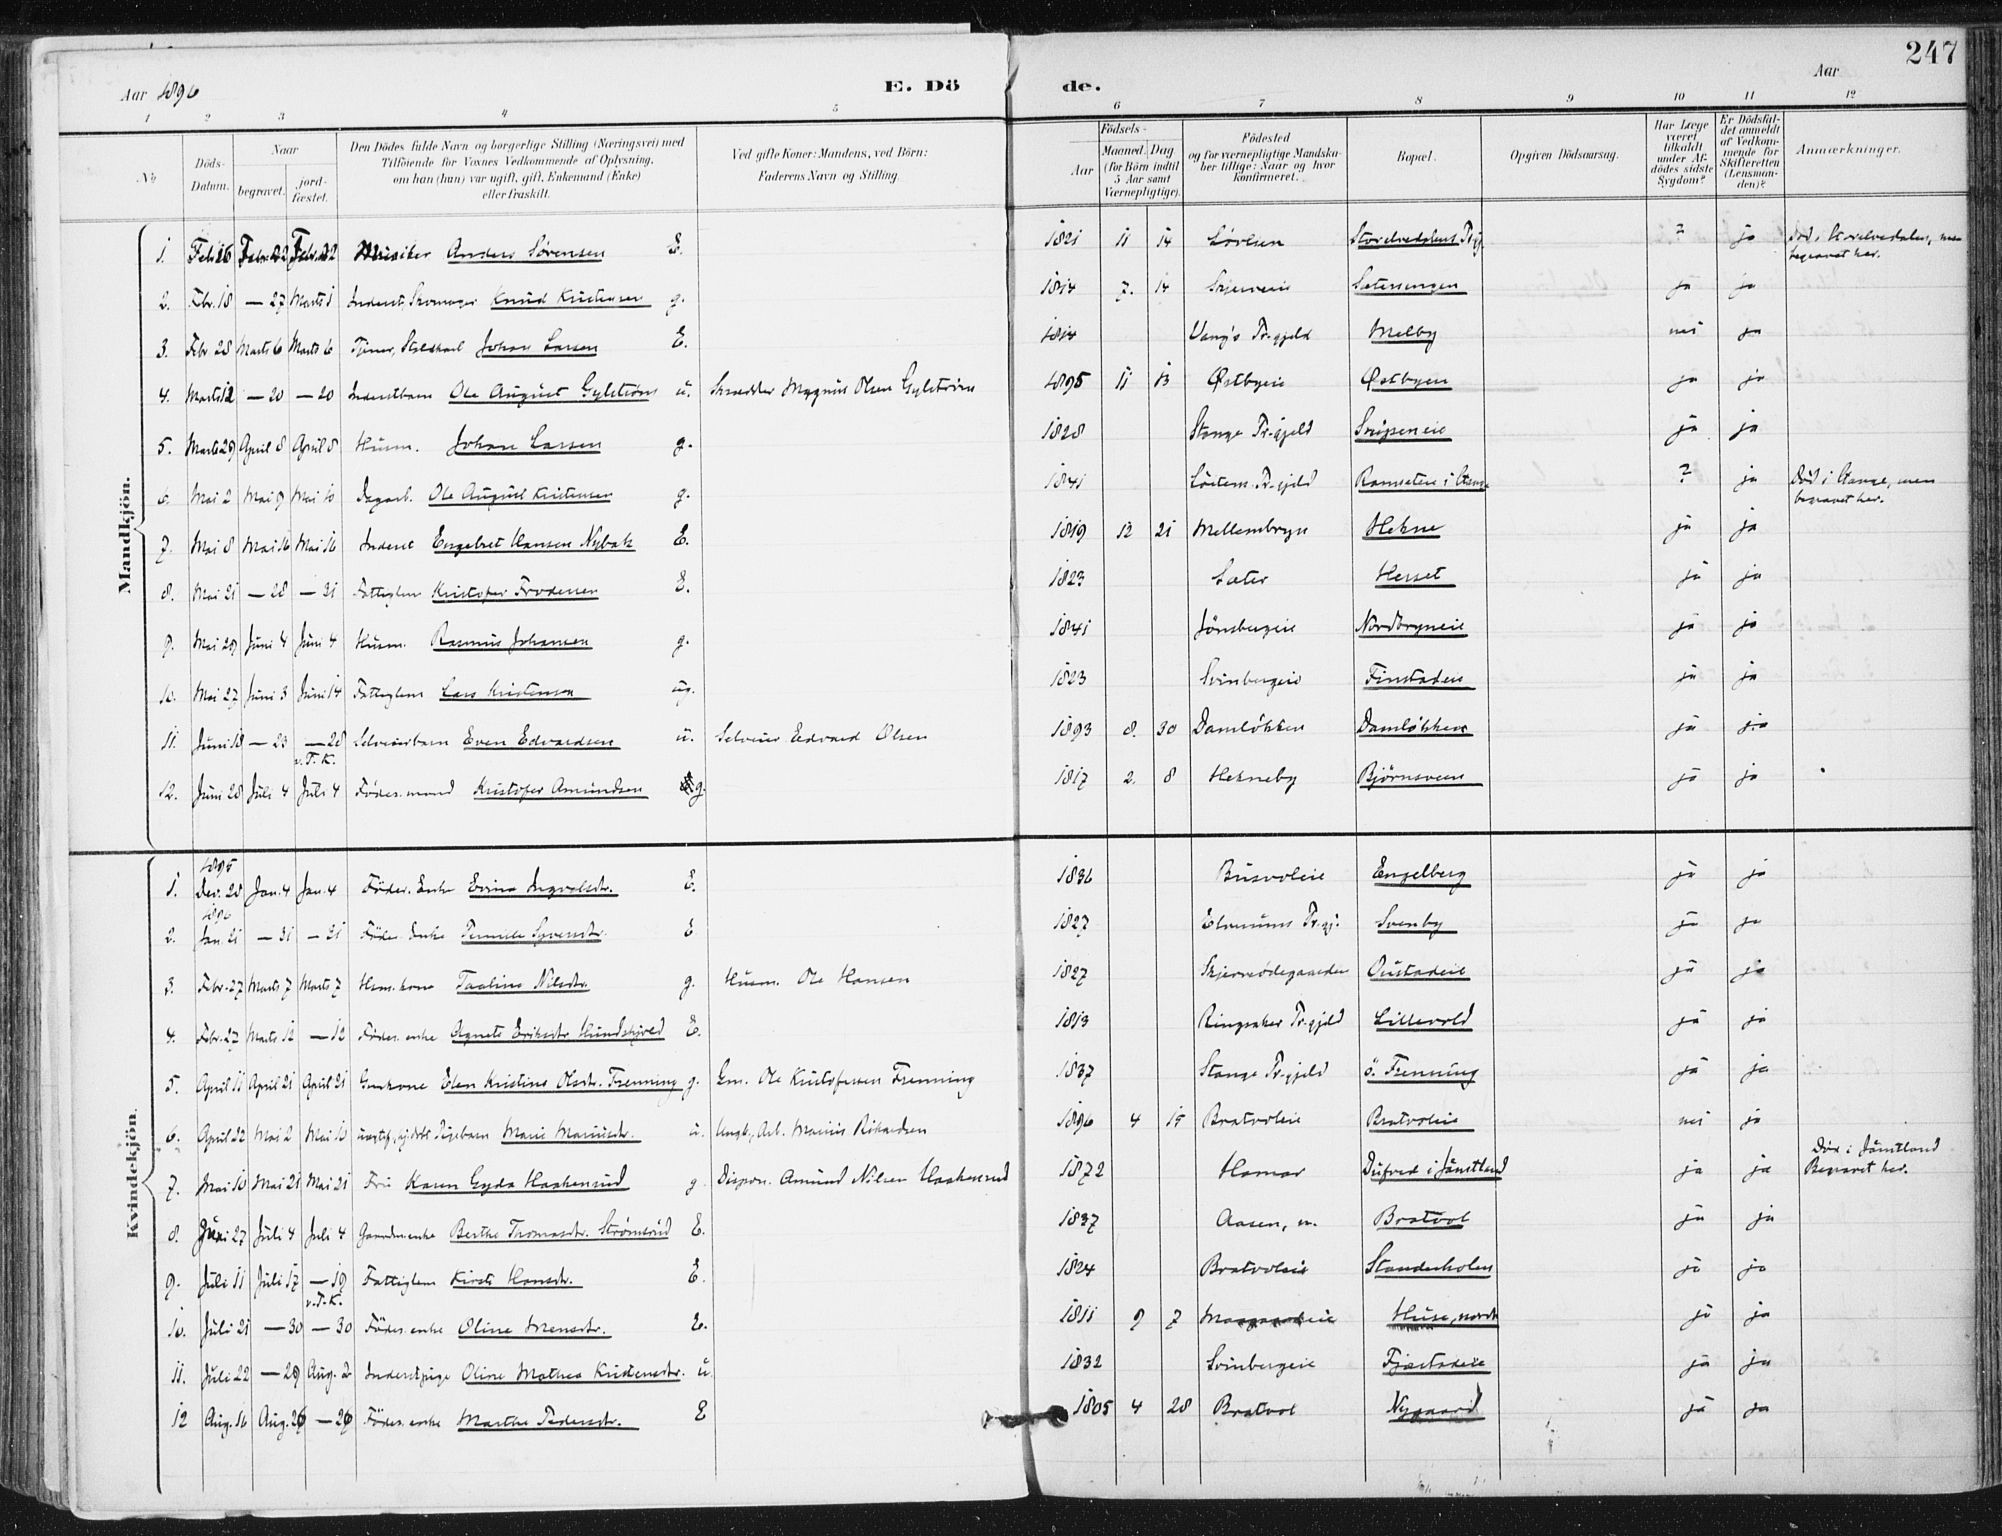 247
Aar 1896
E. Dö de.
Aar
1 2 3 4 5 6 7 8 9 10 11 12
No
Döds-Datum.
Naar begravet. jordfæstet.
Den Dödes fulde Navn og borgerlige Stilling (Næringsvei) med Tilföiende for Voxnes Vedkommende af Oplysning, om han (hun) var ugift, gift, Enkemand (Enke) eller fraskilt.
Ved gifte Koner: Mandens, ved Börn: Faderens Navn og Stilling.
Födsels- Aar Maaned. Dag (for Börn indtil 5 Aar samt Værnepligtige).
Födested og for værnepligtige Mandskaber tillige: Naar og hvor konfirmeret.
Bopæl.
Opgiven Dödsaarsag.
Har Læge været tilkaldt under Afdödes sidste Sygdom?
Er Dödsfaldet anmeldt af Vedkommende for Skifteretten (Lensmanden)?
Anmærkninger.
Mandkjön.
1. Feb. 16 Febr. 22 Febr. 22 Musiker Anders Sörensen E. 1821 11 14 Sörlien ? ja begravet her.
2. Febr. 18 — 27 Marts 1 Inderst, Skomager Knud Kristensen g. 1814 7. 14 Skjerveie Sæterengen ja ja
3. Febr 28 Marts 6 Marts 6 Johan Larsen E. 1814 Vang's Pr.gjeld Melby nei ja
4. Marts 12 — 20 — 20 Inderstbarn Ole August Gylström u. Skrædder Magnus Olsen Gylström 1895 11 13 Østbyeie Østbyen ja ja
5. Marts 29 April 8 April 8 Husm. Johan Larsen g. 1828 Stange Pr.gjeld ja ja
6. Mai 2 Mai 9 Mai 10 Dagarb. Ole August Kristensen g. 1841 Löitens Pr.gjeld i Stange ? ja Död i Stange, men begravet her.
7. Mai 8 Mai 16 Mai 16 Inderst Engebret Hansen Nybak E. 1819 12 21 Mellembryn Hekne ja ja
8. Mai 21 — 28 — 31 Fattiglem Kristofer Frodesen E. 1823 Sæter Herset ja ja
9. Mai 29 Juni 4 Juni 4 Husm. Rasmus Johansen g. 1841 Jönsbergeie Nordbryneie ja ja
10. Mai 27 Juni 3 Juni 14 Fattiglem Lars Kristensen ug. 1823 Svinbergeie Finstadeie ja ja
11. Juni 18 — 23 — 28 v. T. K. Selveierbarn Even Edvardsen u. Selveier Edvard Olsen 1893 8. 30 Damlökken Damlökken ja ja
12. Juni 28 Juli 4 Juli 4 Födes.mand Kristofer Amundsen g. 1817 2. 8 Hekneby Björnsveen ja ja
Kvindekjön.
1. 1895 Dec. 28 Jan. 4 Jan. 4 Födes. Enke Ingvalsdtr. E. 1836 Busvoleie Engelberg ja ja
2. 1896 Jan. 21 — 31 — 31 Födes. Enke Syversdtr. E 1827 Elverums Pr.gj. Svenby ja ja
3. Febr. 27 Marts 7 Marts 7 Husm.kone Paaline Nilsdtr. g. Husm. Ole Hansen 1827 Skjerveödegaarden ja ja
4. Febr. 27 Marts 12 — 12 Födes. enke Agnete Eriksdtr. E. 1813 Ringsaker Pr.gjeld Lillevold ja ja
5. April 11 April 21 April 21 Gmkone Elen Kristine Olsdtr. Frenning g. Gm. Ole Kristofersen Frenning 1837 Stange Pr.gjeld ö. Frenning ja ja
6. April 22 Mai 2 Mai 10 Pigebarn Marie Mariusdtr. u. Ungk., Arb. Marius Rikardsen 1896 4 15 Bratvoleie Bratvoleie nei ja
7. Mai 10 Mai 21 Mai 21 Fru Karen Gyda Haakenrud g Dispon. Amund Nilsen Haakenrud 1872 Hamar Dufved i Jämtland ja ja Död i Jämtland Begravet her.
8. Juni 27 Juli 4 Juli 4 Gaardm.enke Berthe Thomasdtr. Strömsrud E. 1837 Aasen, n. Bratvol ja ja
9. Juli 11 Juli 17 — 19 v. T. K. Fattiglem Kirsti Hansdtr. E. 1824 Bratvoleie Standerholen ja ja
10. Juli 21 — 30 — 30 Födes. enke Oline Mensdtr. E. 1811 9 7 Huse, nordr ja ja
11. Juli 22 — 29 Aug. 2 Inderstpige Oline Mathea Kristensdtr. u. 1832 Svinbergeie Fjæstadeie ja ja
12 Aug. 16 Aug. 26 — 26 Födes. enke Marthe Pedersdtr. E 1805 4 28 Bratvol Nygaard ja ja